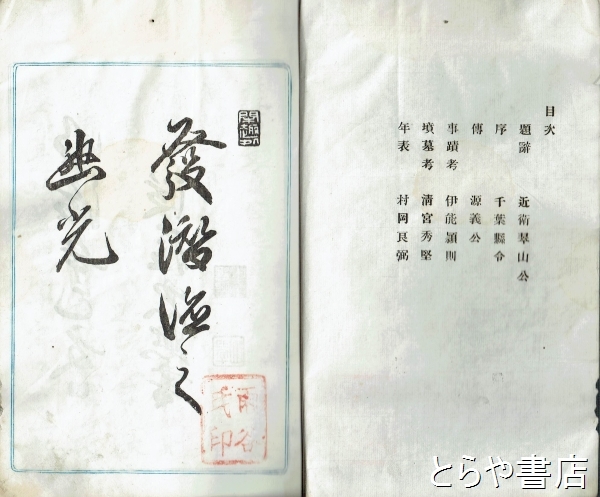 目次
題辭 近衛翠山公
序 千葉縣令
傳 源義公
事蹟考 伊能頴則
墳墓考 淸宮秀堅
年表 村岡良弼
發潛德之
幽光
とらや書店